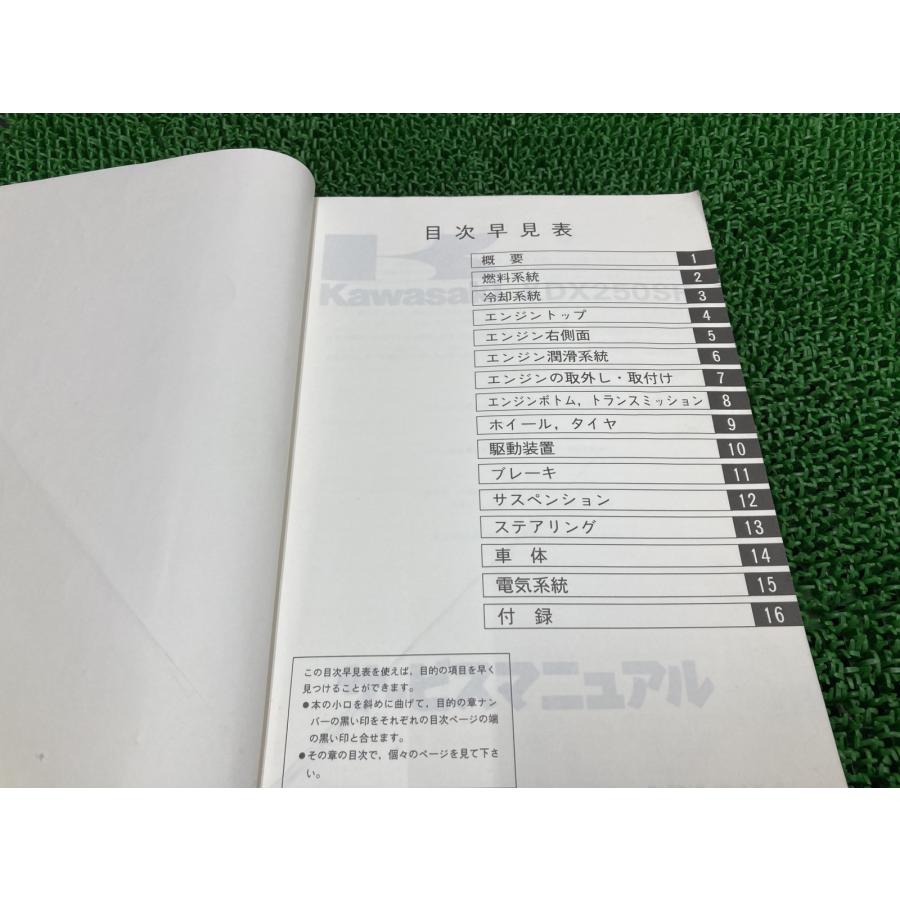 目次早見表
概要 1
燃料系統 2
冷却系統 3
エンジントップ 4
エンジン右側面 5
エンジン潤滑系統 6
エンジンの取外し・取付け 7
エンジンボトム，トランスミッション 8
ホイール，タイヤ 9
駆動装置 10
ブレーキ 11
サスペンション 12
ステアリング 13
車体 14
電気系統 15
付録 16
Kawasaki
DX250S
ビスマニュアル
この目次早見表を使えば，目的の項目を早く
見つけることができます。
●本の小口を斜めに曲げて，目的の章ナン
バーの黒い印をそれぞれの目次ページの端
の黒い印と合せます。
●その章の目次で，個々のページを見て下さ
い。